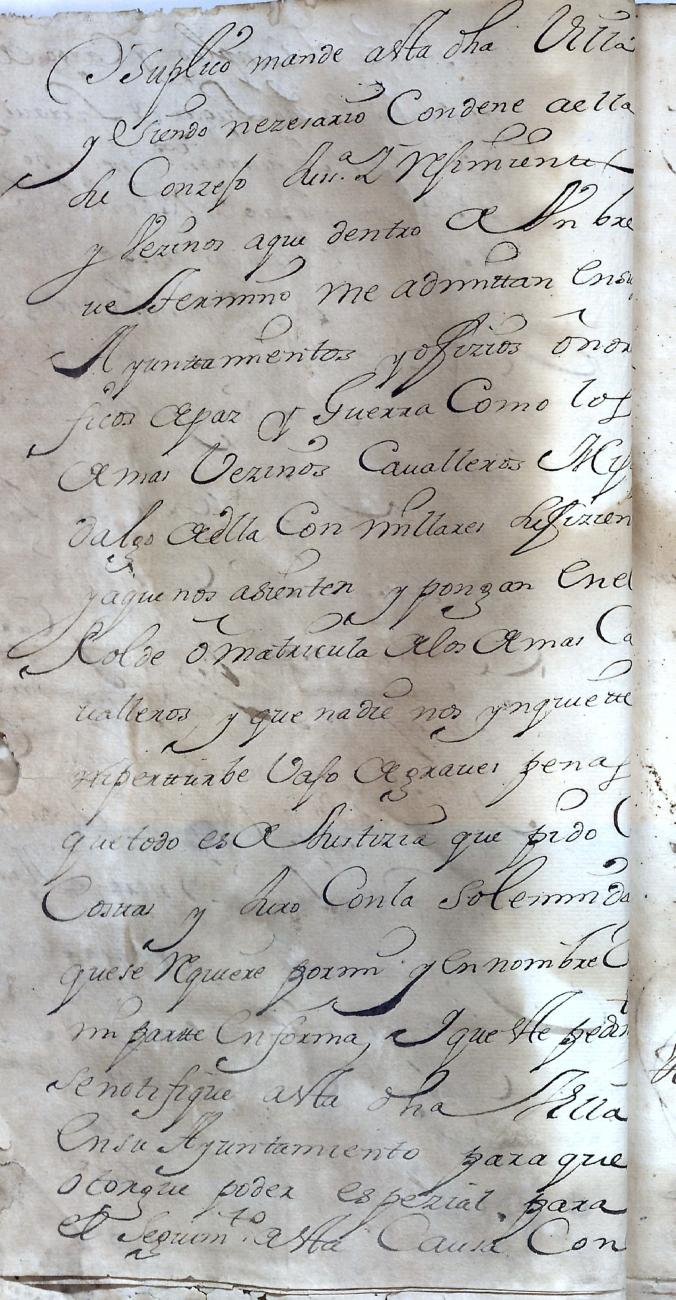 Y Suplico mande a esta dha Villa
y Siendo nezesario Condene a ella
su Conzejo Jus.a Y Rejimiento
y Vezinos a que dentro de Un bre
ue termino me admittan en su
Ayuntamientos y ofizios onor
ficos de paz Y Guerra Como los
demas Vezinos Caualleros Hijos
dalgo de ella Con millares
y a que nos asienten y pongan en el
Rolde o matricula de los demas Ca
ualleros y que nadie nos ynquiette
ni pertturbe Vajo de graues penas
que todo es de Justizia que pido
Costtas y Juro Con la Solemnida
que se Requiere por mi y en nombre
mi partte en forma, Y que este pedim
se notifique a esta dha Villa
en su Ayuntamiento para que
otorgue poder espezial para
el Seguim.to de esta Causa Con